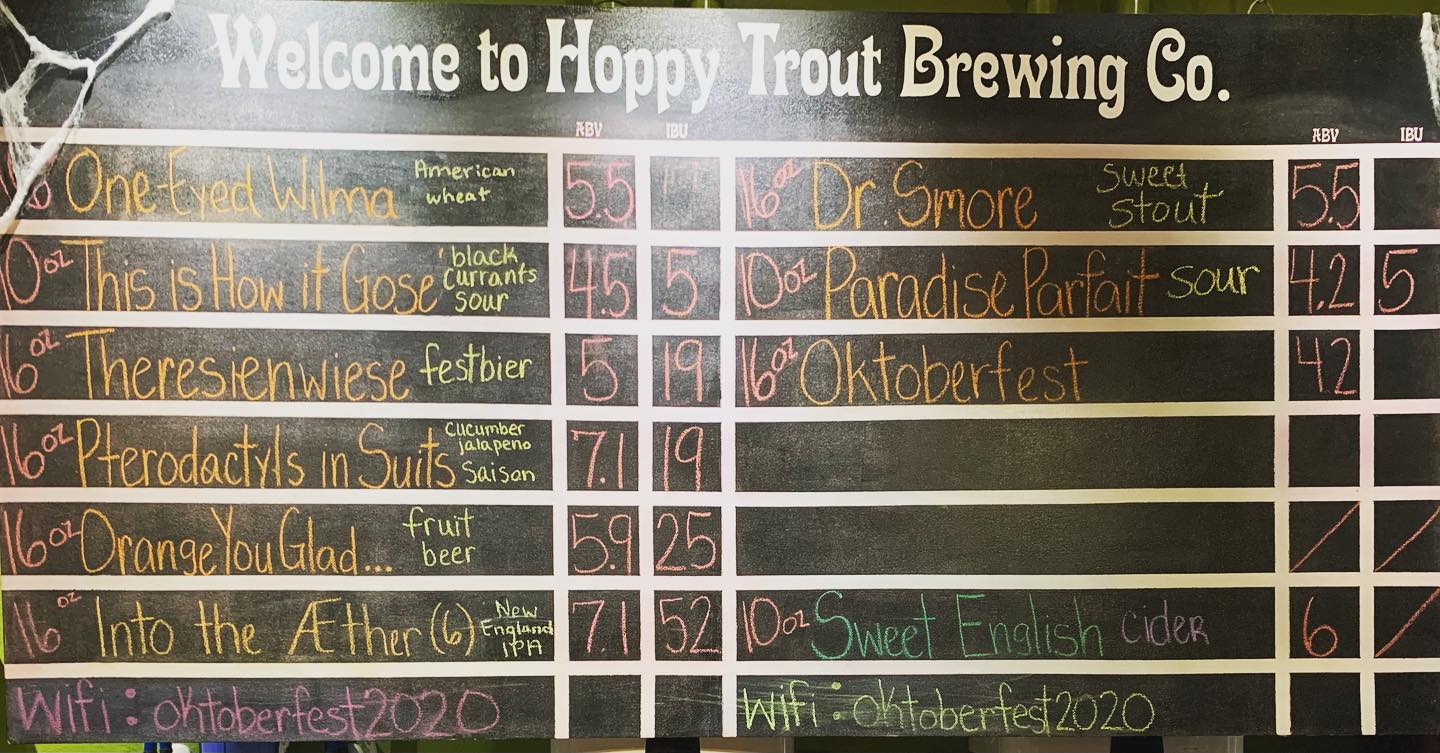 Welcome to Hoppy Trout Brewing Co.
ABV IBU
ABV IBU
One-Eyed Wilma American wheat 5.5
10oz This is How it Gose black currants sour 4.5 5
16oz Theresienwiese festbier 5 19
16oz Pterodactyls in Suits Cucumber jalapeno Saison 7.1 19
16oz Orange You Glad... fruit beer 5.9 25
16oz Into the Æther (6) New England IPA 7.1 52
Wifi: oktoberfest2020
16oz Dr. Smore Sweet Stout 5.5
10oz Paradise Parfait sour 4.2 5
16oz Oktoberfest 42
/ /
10oz Sweet English cider 6 /
Wifi: oktoberfest2020